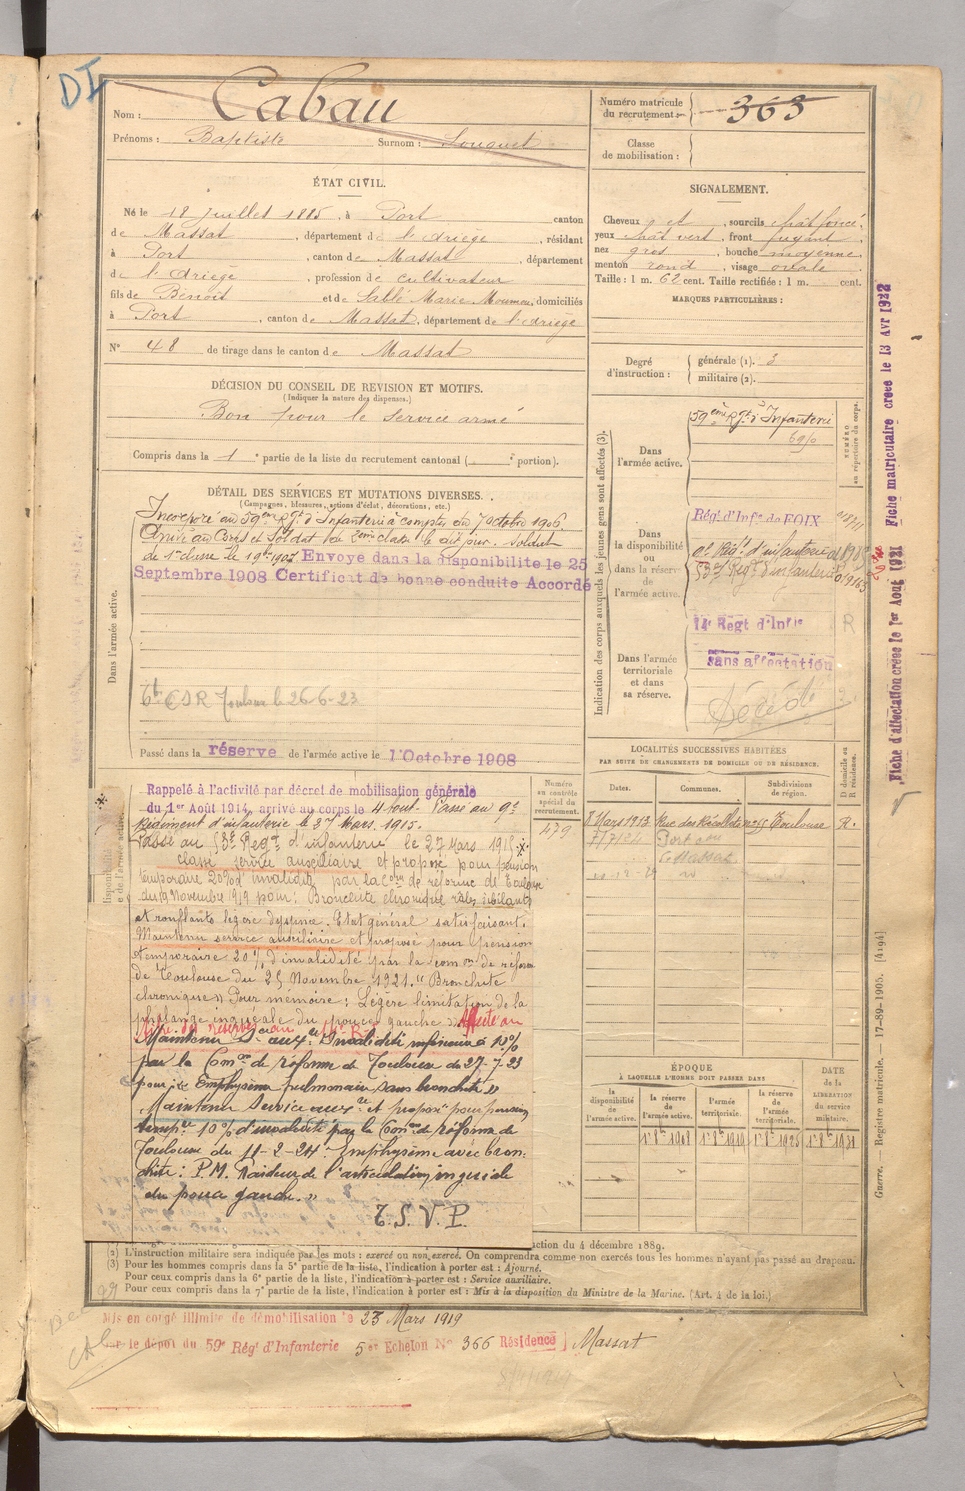 DI
Nom : Cabau
Prénoms : Baptiste Surnom : Louquet
Numéro matricule du recrutement : 363
Classe de mobilisation :
ÉTAT CIVIL.
Né le 18 Juillet 1885, à Port canton
de Massat, département de l'Ariège, résidant
à Port, canton de Massat, département
de l'Ariège, profession de cultivateur
fils de Benoit et de Sablé Marie Moumou, domiciliés
à Port, canton de Massat, département de l'Ariège
N° 48 de tirage dans le canton de Massat
SIGNALEMENT.
Cheveux et, sourcils chât foncé,
yeux chât vert, front fuyant,
nez gros, bouche moyenne,
menton rond, visage ovale
Taille : 1 m. 62 cent. Taille rectifiée : 1 m. cent.
MARQUES PARTICULIÈRES :
Degré d'instruction : générale (1). 3
militaire (2).
DÉCISION DU CONSEIL DE REVISION ET MOTIFS.
(Indiquer la nature des dispenses.)
Bon pour le service armé
Compris dans la 1e partie de la liste du recrutement cantonal ( e portion).
DÉTAIL DES SERVICES ET MUTATIONS DIVERSES.
(Campagnes, blessures, actions d'éclat, décorations, etc.)
Dans l'armée active.
Incorporé au 59ème Rgt d'Infanterie à compter du 7 octobre 1906.
Arrivé au Corps et Soldat de 2ème classe le dit jour. Soldat
de 1re classe le 19 1907 Envoyé dans la disponibilite le 25
Septembre 1908 Certificat de bonne conduite Accordé
Toulouse le 26-6-23
Passé dans la réserve de l'armée active le 1 Octobre 1908
Indication des corps auxquels les jeunes gens sont affectés (3).
NUMÉRO au répertoire du corps.
Dans l'armée active.
59ème Rgt d'Infanterie
Dans la disponibilité ou dans la réserve de l'armée active.
Régt d'Infie de FOIX
9e Régt d'infanterie
53e Regt d'infanterie
Dans l'armée territoriale et dans sa réserve.
14e Regt d'Infie
R
sans affectation
Décédé
Fiche d'affectation créée le 1er Aout 1921
Fiche matriculaire créée le 13 Avr 1922
Rappelé à l'activité par décret de mobilisation générale
du 1er Août 1914, arrivé au corps le 4 août. Passé au 9e
Régiment d'infanterie le 27 Mars 1915.
Passé au 53e Regt d'infanterie le 27 Mars 1915
classé service auxiliaire et proposé pour pension
temporaire 20% d'invalidité par la Con de réforme de Toulouse
du 19 Novembre 1919 pour : Bronchite chronique râles sibilants
et ronflants légère dyspnée. Etat général satisfaisant.
Maintenu service auxiliaire et proposé pour pension
temporaire 20% d'invalidité par la Comon de réforme
de Toulouse du 25 Novembre 1921. "Bronchite
chronique" Pour mémoire : Légère limitation de la
phalange inguéale du pouce gauche Affecté au
Maintenu Sce auxre Invalidité inférieure à 10%
par la Comon de réforme de Toulouse du 27-7-23
pour : "Emphysème pulmonaire sans bronchite"
Maintenu Service auxre et proposé pour pension
tempre 10% d'invalidité par la Comon de réforme de
Toulouse du 11-2-24. Emphysème avec bron-
chite : P.M. Raideur de l'articulation inguéale
du pouce gauche. "
T.S.V.P.
Numéro au contrôle spécial du recrutement.
479
LOCALITÉS SUCCESSIVES HABITÉES
PAR SUITE DE CHANGEMENTS DE DOMICILE OU DE RÉSIDENCE.
Dates. Communes. Subdivisions de région. D domicile ou R résidence.
Mars 1913 Rue des Récollets Toulouse R.
Port
Massat
ÉPOQUE
À LAQUELLE L'HOMME DOIT PASSER DANS
la disponibilité de l'armée active. la réserve de l'armée active. l'armée territoriale. la réserve de l'armée territoriale. DATE de la LIBÉRATION du service militaire.
1er 8bre 1908 1er 8bre 1919 1er 8bre 1925 1er 8bre 1931
Guerre. — Registre matricule. — 17-89-1905. [4194]
ction du 4 décembre 1889.
(2) L'instruction militaire sera indiquée par les mots : exercé ou non exercé. On comprendra comme non exercés tous les hommes n'ayant pas passé au drapeau.
(3) Pour les hommes compris dans la 5e partie de la liste, l'indication à porter est : Ajourné.
Pour ceux compris dans la 6e partie de la liste, l'indication à porter est : Service auxiliaire.
Pour ceux compris dans la 7e partie de la liste, l'indication à porter est : Mis à la disposition du Ministre de la Marine. (Art. 4 de la loi.)
Mis en congé illimité de démobilisation le 23 Mars 1919
sur le dépot du 59e Régt d'Infanterie 5e Echelon N° 366 Résidence Massat